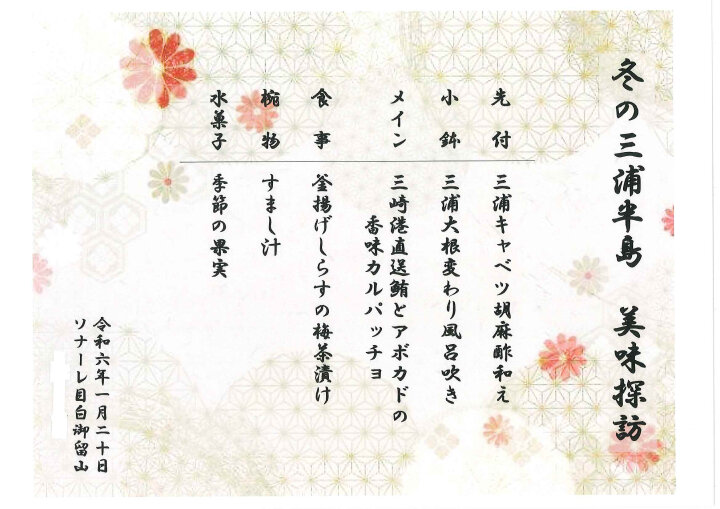 冬の三浦半島　美味探訪
先付　三浦キャベツ胡麻酢和え
小鉢　三浦大根変わり風呂吹き
メイン　三崎港直送鮪とアボカドの
香味カルパッチョ
食事　釜揚げしらすの梅茶漬け
椀物　すまし汁
水菓子　季節の果実
令和六年一月二十日
ソナーレ目白御留山